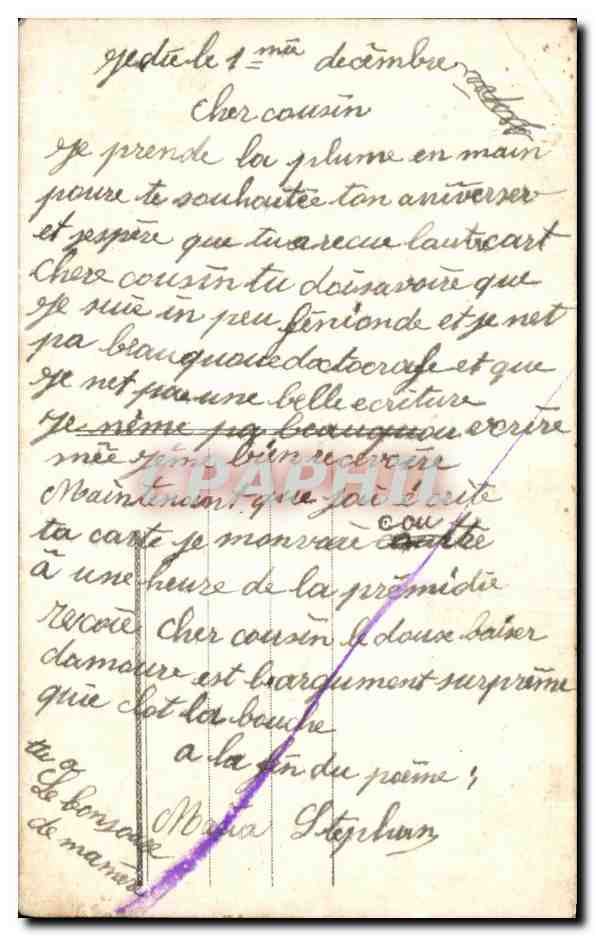 Jedie le 1 mée decêmbre
cher cousin
Je prende la plume en main
poure te souhaitée ton aniverser
et jespère que tu a recue lautre cart
Chere cousin tu doisavoire que
Je suie in peu féniande et je net
pa beauquoue doctocrafe et que
Je net pa une belle ecriture
Je nême pa beauquou ecrire
mée jême bien recevoire
Maintenant que jai écrite
ta carte je monvaie cou
à une heure de la prêmidie
recoie cher cousin le doux baiser
damoure est largument surprême
quie clot la bouche
A la fin du poème ;
Maria Stephan
tu a
Le bonjoure
de mamère
CPAPHIL